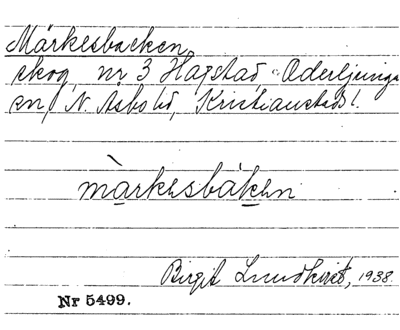 Märkesbacken
skog, nr 3 Hagstad Oderljunga
sn, N. Åsbo hd, Kristianstads l.
màrkesbáken
Birgit Lundkvist, 1938.
Nr 5499.